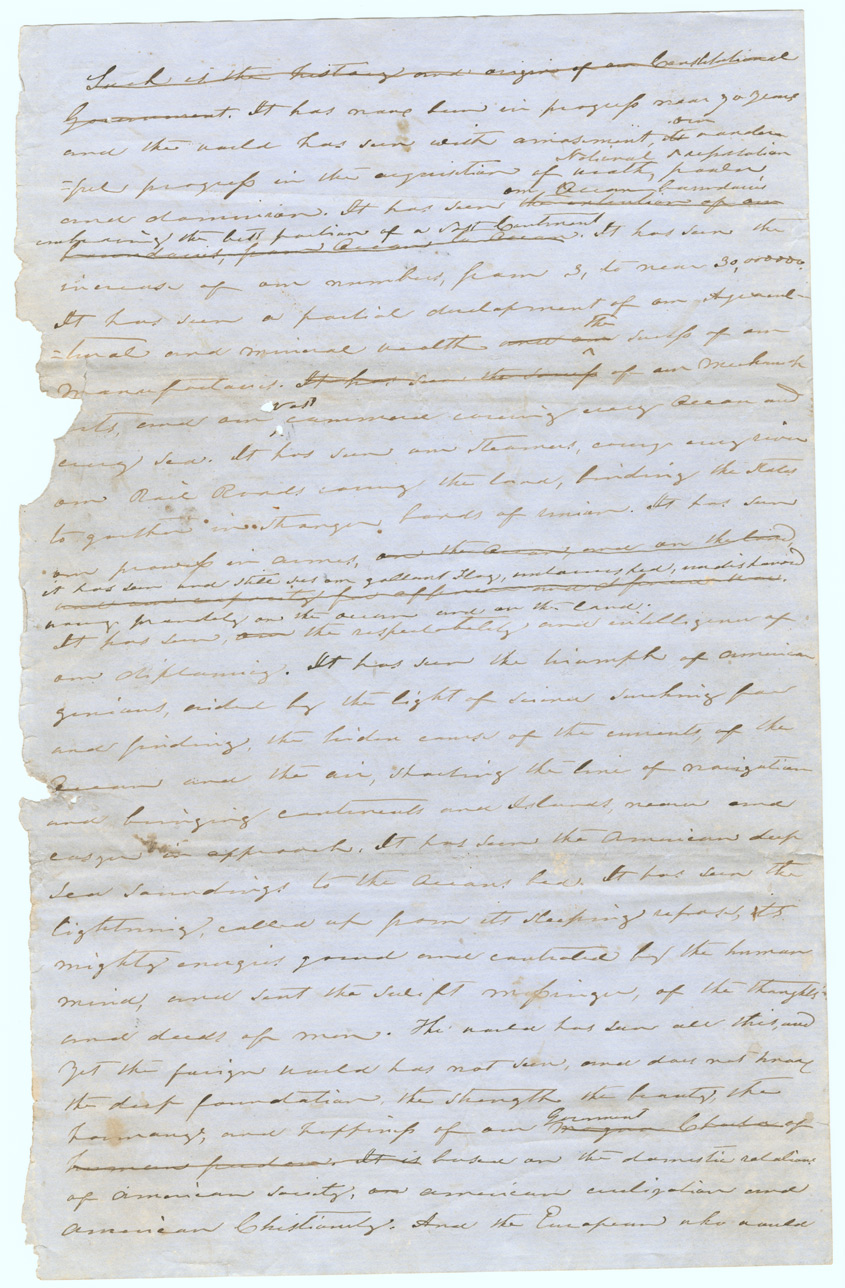 Such is the history and origin of our Constitutional
Government. It has now been in progress near 70 years
and the world has seen with amasement, the onwarding
our
=pid progress in the aquisition of wealth, power,
National reputation
and dominion. It has seen the extention of our
our Ocean boundaries
embracing the best portion of a vast Continent
boundaries, from Ocean to Ocean. It has seen the
increase of our numbers, from 3, to near 30,000000.
It has seen a partial development of our Agricul-
=tural and mineral wealth and our success of our
the
manufactories. It has seen the success of our mechanic
arts, and our commerce covering every Ocean and
vast
every sea. It has seen our steamers, on every river
our Rail Roads over the land, binding the States
to gether in stronger bonds of union. It has seen
our prowess in armes, on the ocean and on the land,
it has seen and still sees our gallant flag, untarnished, undishonored
and our capacity for offence and defence war.
waving proudly on the ocean and on the land.
It has seen, our the respectability and intelligence of
our diplomacy. It has seen the triumph of American
genious, aided by the light of science searching for
and finding, the hiden cause of the currents of the
Ocean and the air, shorting the line of navigation
and bringing continents and Islands, nearer and
easyer in approach. It has seen the American deep
sea soundings to the Oceans bed. It has seen the
lightning, called up from its sleeping repose, its
mighty energies and controled by the human
mind, and sent the swift messinger, of the thoughts
and deeds of men. The world has seen all this, and
yet the foreign world has not seen, and does not know
the deep foundation, the strength, the beauty, the
harmony, and happiness of our Magna Charta of
Government
human freedom. It is based on the domestic relations
of American society, on american civilization and
American Christianity. And the European who would